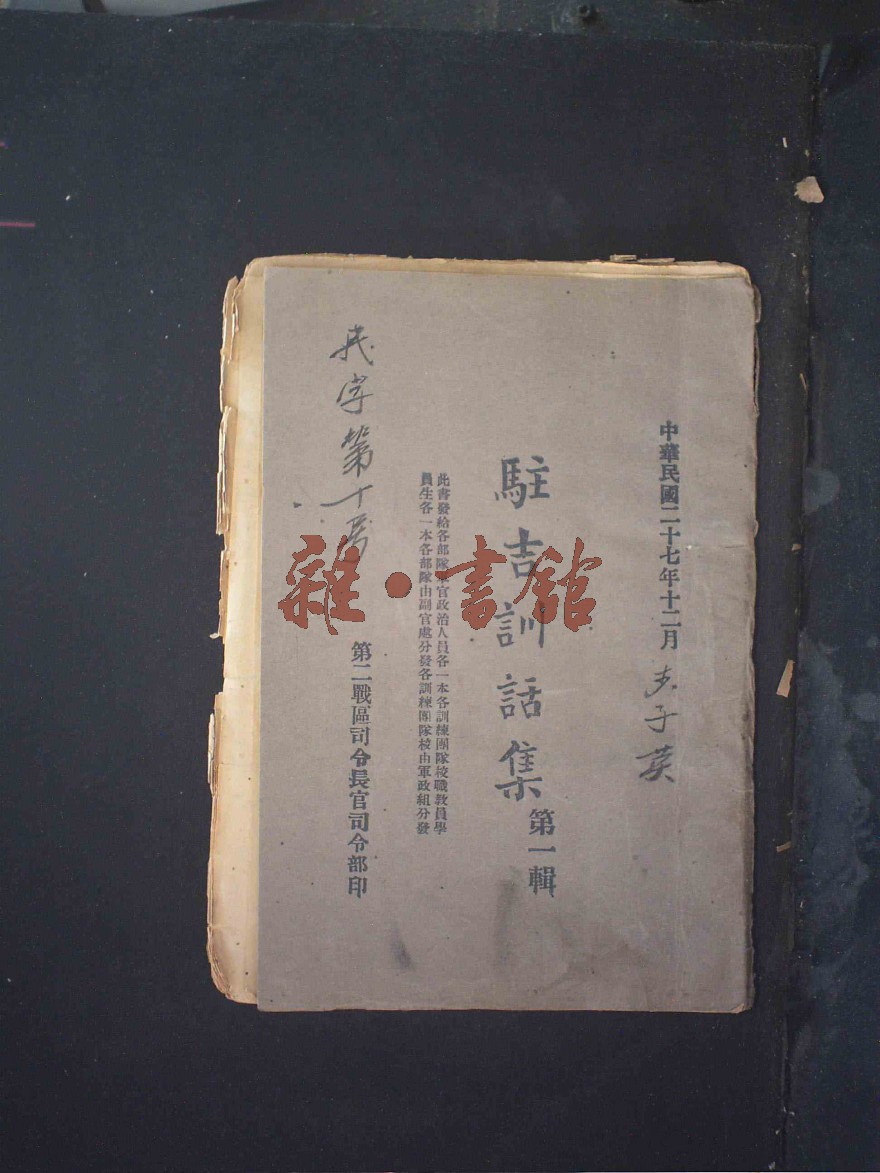 中華民國二十七年十二月
駐吉訓話集
第一輯
此書發給各部隊軍官政治人員各一本各訓練團隊校職教員學
員生各一本各部隊由副官處分發各訓練團隊校由軍政組分發
字第十号
第二戰區司令長官司令部印
雜·書館